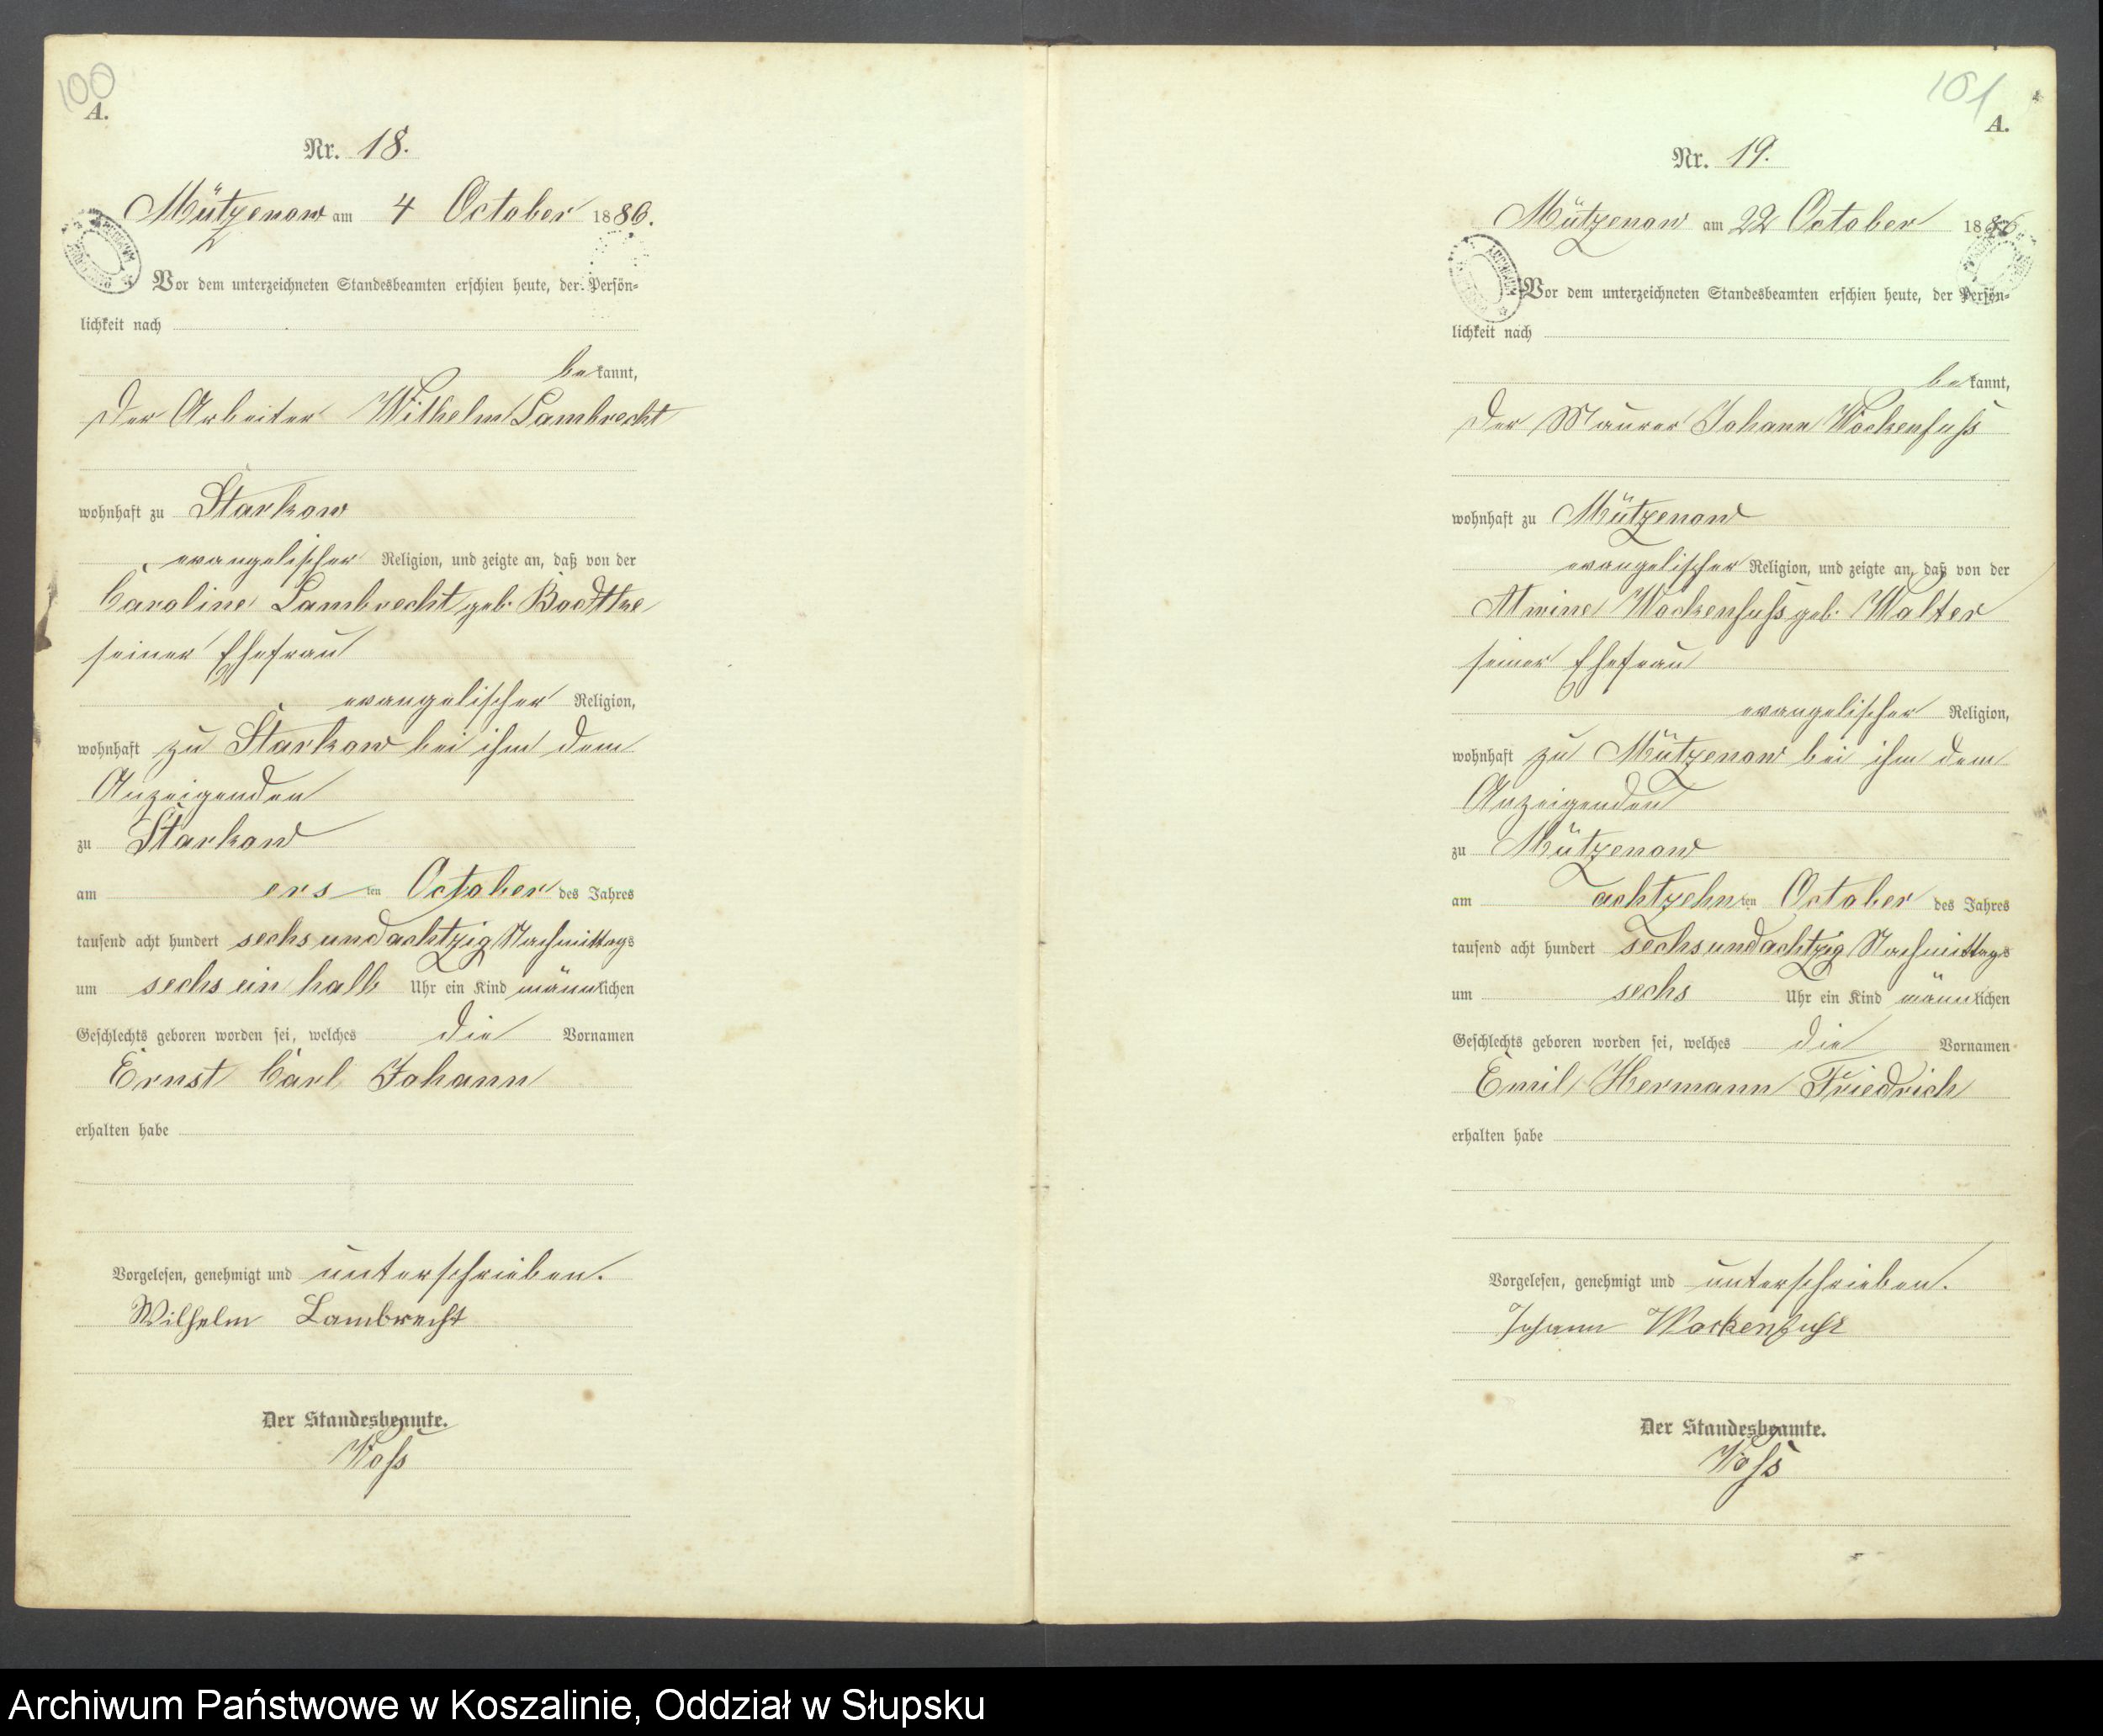 100
A.
Nr. 18.
Mützenow am 4 October 1886.
Vor dem unterzeichneten Standesbeamten erschien heute, der Persön-
lichkeit nach
bekannt,
der Arbeiter Wilhelm Lambrecht
wohnhaft zu Starkow
evangelischer Religion, und zeigte an, daß von der
Caroline Lambrecht geb.
seiner Ehefrau
evangelischer Religion,
wohnhaft zu Starkow bei ihm dem
Anzeigenden
zu Starkow
am ersten October des Jahres
tausend acht hundert sechsundachtzig Nachmittags
um sechs ein halb Uhr ein Kind männlichen
Geschlechts geboren worden sei, welches die Vornamen
Ernst Carl Johann
erhalten habe
Vorgelesen, genehmigt und unterschrieben.
Wilhelm Lambrecht
Der Standesbeamte.
Voß
101
A.
Nr. 19.
Mützenow am 22 October 1886
Vor dem unterzeichneten Standesbeamten erschien heute, der Persön-
lichkeit nach
bekannt,
der Maurer Johann Wockenfuß
wohnhaft zu Mützenow
evangelischer Religion, und zeigte an, daß von der
Alwine Wockenfuß geb. Walter
seiner Ehefrau
evangelischer Religion,
wohnhaft zu Mützenow bei ihm dem
Anzeigenden
zu Mützenow
am achtzehnten October des Jahres
tausend acht hundert sechsundachtzig Nachmittags
um sechs Uhr ein Kind männlichen
Geschlechts geboren worden sei, welches die Vornamen
Emil Hermann Friedrich
erhalten habe
Vorgelesen, genehmigt und unterschrieben.
Johann Wockenfuß
Der Standesbeamte.
Voß
Archiwum Państwowe w Koszalinie, Oddział w Słupsku